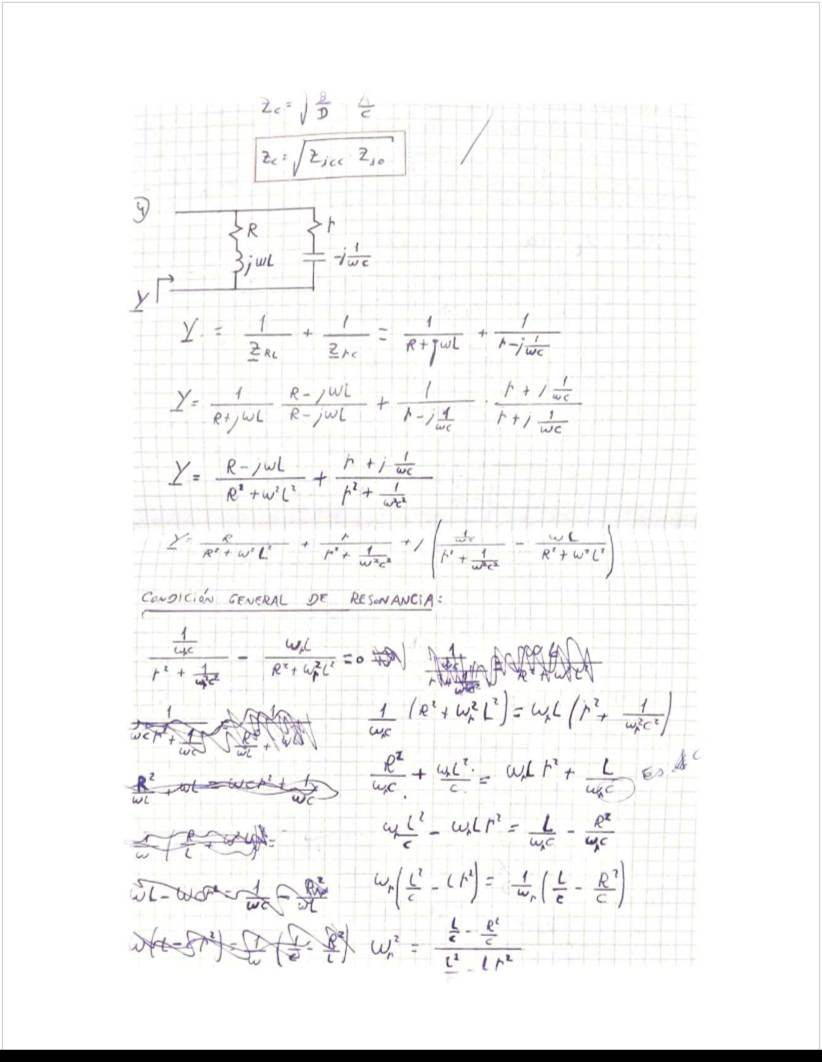 Zc = √(B/D A/C)
Zc = √(Z₁cc Z₁₀)
4)
R r
jωL -j 1/ωc
Y
Y = 1/Z_RL + 1/Z_rc = 1/(R+jωL) + 1/(r-j 1/ωc)
Y = 1/(R+jωL) (R-jωL)/(R-jωL) + 1/(r-j 1/ωc) · (r+j 1/ωc)/(r+j 1/ωc)
Y = (R-jωL)/(R²+ω²L²) + (r+j 1/ωc)/(r²+1/ω²c²)
Y = R/(R²+ω²L²) + r/(r²+1/ω²c²) + j((1/ωc)/(r²+1/ω²c²) - ωL/(R²+ω²L²))
CONDICIÓN GENERAL DE RESONANCIA:
(1/ωᵣc)/(r²+1/ωᵣ²c²) - ωᵣL/(R²+ωᵣ²L²) = 0
1/ωᵣc (R²+ωᵣ²L²) = ωᵣL (r²+1/ωᵣ²c²)
R²/ωL + ωL = ωcr² + 1/ωc
R²/ωᵣc + ωᵣL²/c = ωᵣLr² + L/ωᵣc Es
ωᵣL²/c - ωᵣLr² = L/ωᵣc - R²/ωᵣc
ωL - ωcr² = 1/ωc - R²/ωL
ωᵣ(L²/c - Lr²) = 1/ωᵣ (L/c - R²/c)
ωᵣ² = (L/c - R²/c)/(L² - Lr²)